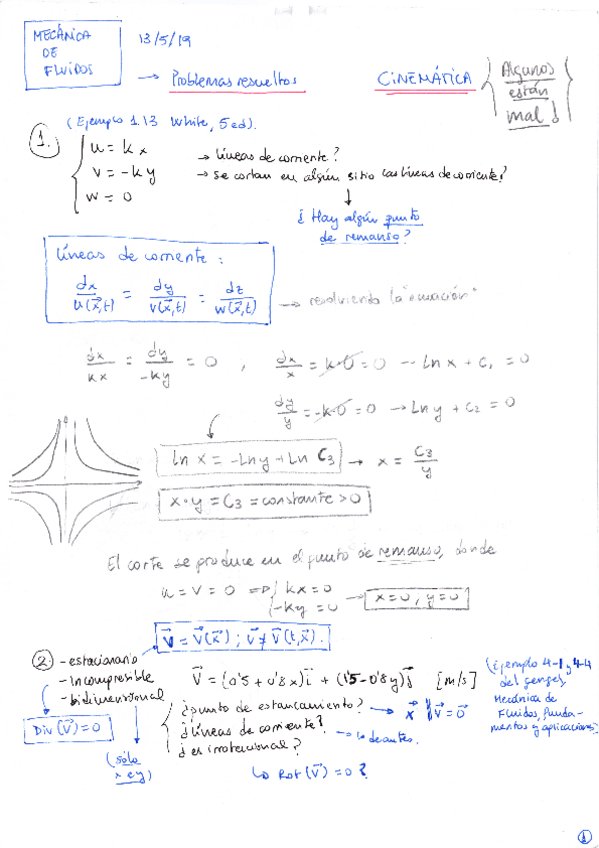 MECÁNICA
DE
FLUIDOS
13/5/19
→ Problemas resueltos
CINEMÁTICA
Algunos
están
mal
(Ejemplo 1.13 White, 5ed).
1.
u = kx
→ líneas de corriente?
v = -ky
→ se cortan en algún sitio las líneas de corriente?
w = 0
¿Hay algún punto
de remanso?
líneas de corriente:
dx/u(x⃗,t) = dy/v(x⃗,t) = dz/w(x⃗,t)
→ resolviendo la "ecuación"
dx/kx = dy/-ky = 0 , dx/x = k·0 = 0 → Ln x + C₁ = 0
dy/y = -k·0 = 0 → Ln y + C₂ = 0
ln x = -Ln y + Ln C₃ → x = C₃/y
x·y = C₃ = constante > 0
El corte se produce en el punto de remanso, donde
u = v = 0 ⇒ kx = 0
-ky = 0
→ x=0, y=0
V⃗ = V⃗(x⃗) ; V⃗ ≠ V⃗(t,x⃗).
2. - estacionario
- incompresible
- bidimensional
V⃗ = (0'5 + 0'8x)i⃗ + (1'5 - 0'8y)j⃗ [m/s]
(Ejemplo 4-1 y 4-4
del Cengel
Mecánica de
Fluidos, Funda-
mentos y aplicaciones)
¿punto de estancamiento? → x⃗ || V⃗ = 0⃗
¿líneas de corriente? lo de antes.
¿es irrotacional?
Div(V⃗) = 0
(sólo
x e y)
↳ Rot(V⃗) = 0?
1